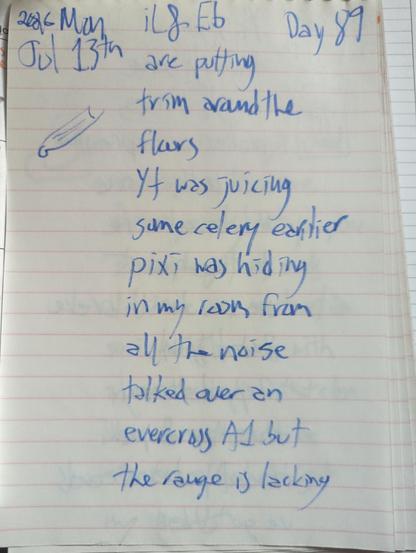 2026 Mon
Jul 13th
iL & Eb
Day 89
are putting
trim around the
floors
Yt was juicing
some celery earlier
pixi was hiding
in my room from
all the noise
talked over an
evercross A1 but
the range is lacking